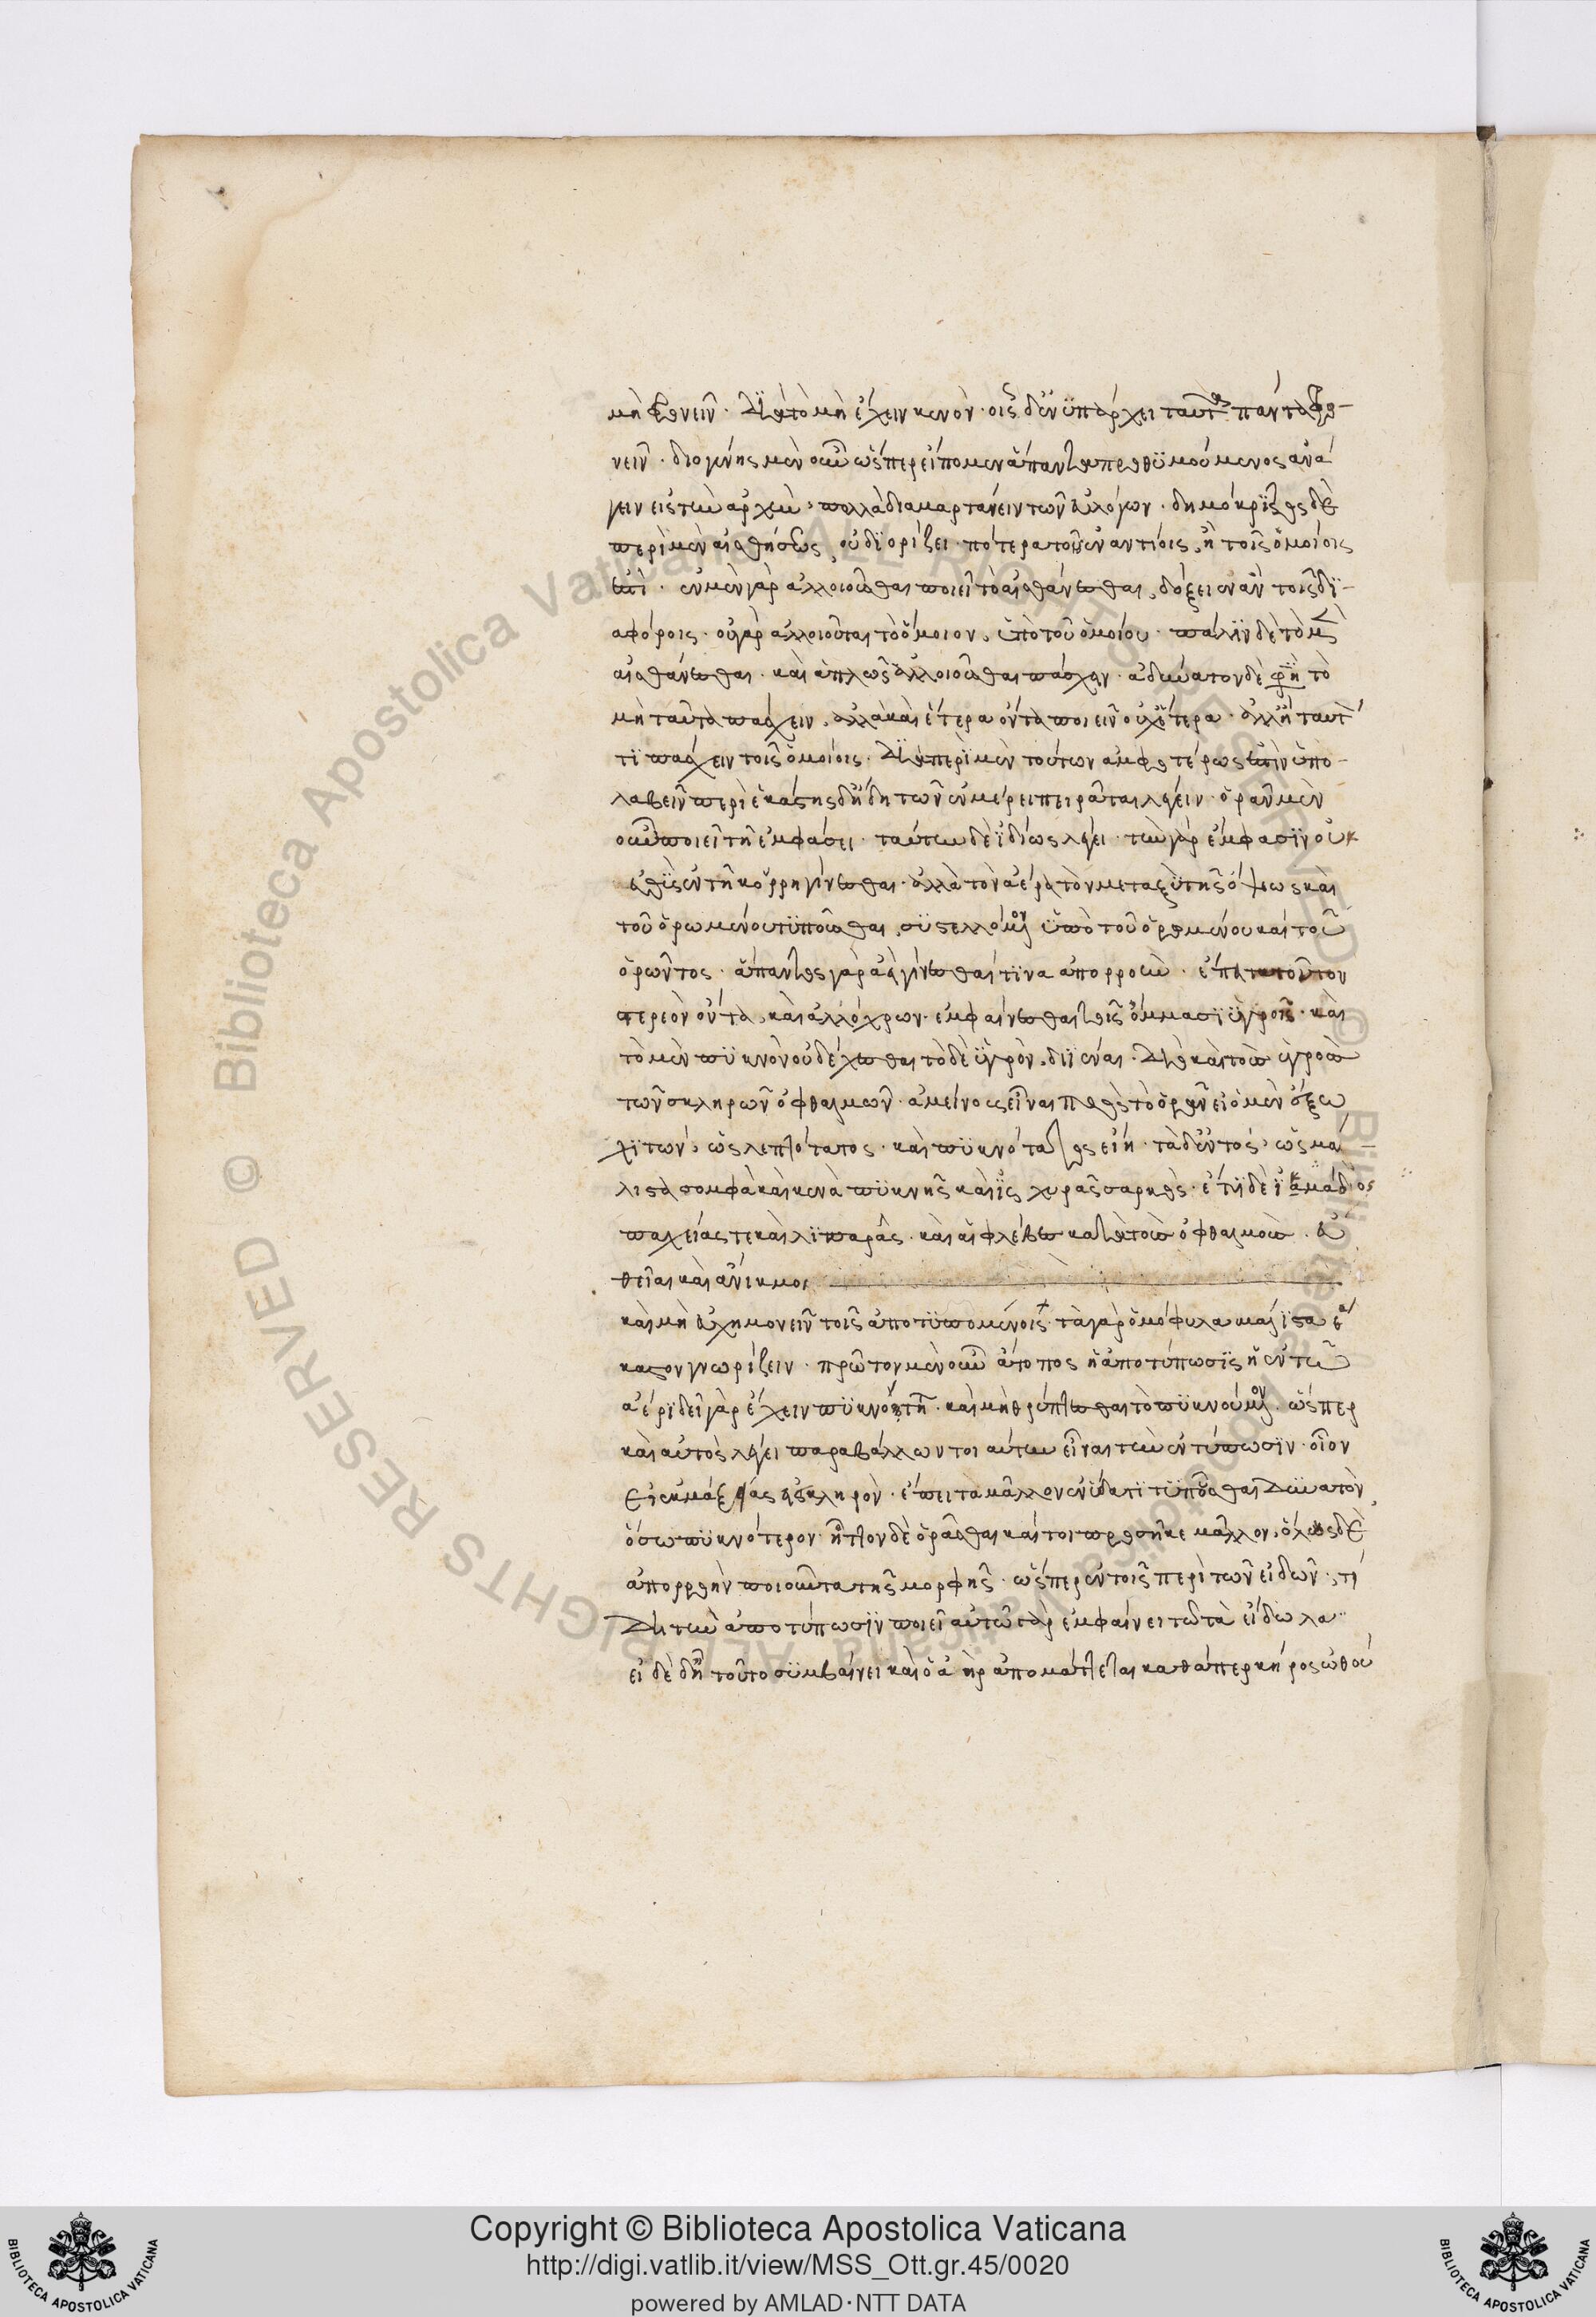 μὴ φρονεῖν. διὰ τὸ μὴ ἔχειν κενόν. οἷς δ' ἐνϋπάρχει ταῦτα πάντα φρο-
νεῖν. διογένης μὲν οὖν ὥσπερ εἴπομεν ἅπαντα προθϋμούμενος ἀνά
γειν εἰς τὴν ἀρχὴν, πολλὰ διαμαρτάνειν τῶν εὐλόγων. δημόκρϊτος δὲ
περὶ μὲν αἰσθήσεως, οὐ δϊορίζει. πότερα τοῖς ἐναντίοις, ἢ τοῖς ὁμοίοις
ἐστί. εἰ μὲν γὰρ ἀλλοιοῦσθαι ποιεῖ τὸ αἰσθάνεσθαι, δόξειεν ἂν τοῖς δϊ-
αφόροις. οὐ γὰρ ἀλλοιοῦται τὸ ὅμοιον, ὑπὸ τοῦ ὁμοίου. πάλϊν δὲ τὸ μὲν
αἰσθάνεσθαι. καὶ ἁπλῶς ἀλλοιοῦσθαι πάσχειν. ἀδύνατον δὲ φησὶ τὸ
μὴ ταῦτα πάσχειν, ἀλλὰ κἂν ἕτερα ὄντα ποιεῖν οὐχ ἕτερα. ἀλλ' ᾗ ταὐτό
τϊ πάσχειν τοῖς ὁμοίοις. διὸ περὶ μὲν τούτων ἀμφοτέρως ἐστὶν ὑπο-
λαβεῖν περὶ ἑκάστης δ' ἤδη τῶν ἐν μέρει πειρᾶται λέγειν. ὁρᾶν μὲν
οὖν ποιεῖ τῇ ἐμφάσει. ταύτην δὲ ἰδίως λέγει. τὴν γὰρ ἔμφασϊν οὐκ
εὐθὺς ἐν τῇ κόρρη γίνεσθαι. ἀλλὰ τὸν ἀέρα τὸν μεταξὺ τῆς ὄψεως καὶ
τοῦ ὁρωμένου τϋποῦσθαι, σϋστελλόμενον ὑπὸ τοῦ ὁρωμένου καὶ τοῦ
ὁρῶντος. ἅπαντος γὰρ ἀεὶ γίνεσθαί τϊνα ἀπορροὴν. ἔπειτα τοῦτον
στερεὸν ὄντα, καὶ ἀλλόχρων. ἐμφαίνεσθαι τοῖς ὄμμασϊ ὑγροῖς. καὶ
τὸ μὲν πϋκνὸν οὐ δέχεσθαι τὸ δὲ ὑγρὸν, δϊϊέναι. διὸ καὶ τοὺς ὑγροὺς
τῶν σκληρῶν ὀφθαλμῶν. ἀμείνους εἶναι πρὸς τὸ ὁρᾶν εἰ ὁ μὲν ἔξω
χϊτὼν, ὡς λεπτότατος. καὶ πϋκνότατος εἴη. τὰ δ' ἐντὸς, ὡς μά-
λιστα σομφὰ καὶ κενὰ πϋκνῆς καὶ ἰσχυρᾶς σαρκὸς. ἔτϊ δὲ ἰκμάδος
παχείας τε καὶ λϊπαρᾶς. καὶ αἱ φλέβες κατὰ τοὺς ὀφθαλμοὺς. εὐ
θεῖαι καὶ ἄνικμοι
καὶ μὴ εὐχημονεῖν τοῖς ἀποτϋπομένοις. τὰ γὰρ ὁμόφυλα μάλϊστα ἕ
καστον γνωρίζειν. πρῶτον μὲν οὖν ἄτοπος ἡ ἀποτύπωσϊς ἡ ἐν τῷ
ἀέρϊ δεῖ γὰρ ἔχειν πϋκνότητα. καὶ μὴ θρύπτεσθαι τὸ πϋκνούμενον. ὥσπερ
καὶ αὐτὸς λέγει παραβάλλων τοιαύτην εἶναι τὴν ἐντύπωσϊν. οἷον
εἰ ἐκμάξειας εἰς σκληρὸν. ἔπειτα μᾶλλον ἐν ὕδατϊ τϋποῦσθαι δυνατὸν
ὅσω πϋκνότερον. ἧττον δὲ ὁρᾶσθαι καίτοι προσῆκε μᾶλλον, ὅλως δὲ
ἀπορροὴν ποιοῦντα τῆς μορφῆς. ὥσπερ ἐν τοῖς περὶ τῶν εἰδῶν. τί
δεῖ τὴν ἀποτύπωσϊν ποιεῖ αὐτὰ γὰρ ἐμφαίνειται τὰ εἴδωλα
εἰ δὲ δὴ τοῦτο σϋμβαίνει καὶ ὁ ἀὴρ ἀπομάττεται καθάπερ κηρὸς ὠθού
Copyright © Biblioteca Apostolica Vaticana
http://digi.vatlib.it/view/MSS_Ott.gr.45/0020
powered by AMLAD·NTT DATA
BIBLIOTECA APOSTOLICA VATICANA
BIBLIOTECA APOSTOLICA VATICANA